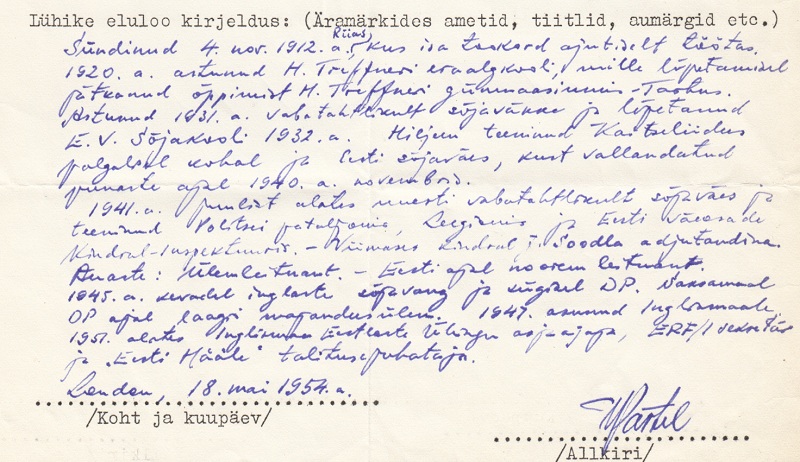 Lühike eluloo kirjeldus: (Äramärkides ametid, tiitlid, aumärgid etc.)
Sündinud 4. nov. 1912. a. Riias, kus isa teekord ajutiselt töötas.
1920. a. astunud H. Treffneri eraalgkooli, mille lõpetamisel
jätkanud õppimist H. Treffneri gümnaasiumis - Tartus.
Astunud 1931. a. vabatahtlikult sõjaväkke ja lõpetanud
E.V. Sõjakooli 1932. a. Hiljem teeninud Kaitseliidus
palgalisel kohal ja Eesti sõjaväes, kust vallandatud
punaste ajal 1940. a. novembris.
1941. a. juulist alates uuesti vabatahtlikult sõjaväes ja
teeninud Politsei pataljonis, Leegionis ja Eesti väeosade
Kindral-Inspektuuris. - Viimases kindral J. Soodla adjutandina.
Auaste: Ülemleitnant. - Eesti ajal noorem leitnant.
1945. a. kevadel inglaste sõjavang ja sügisel DP. Saksamaal
DP ajal laagri majandusülem. 1947. asunud Inglismaale,
1951. alates Inglismaa Eestlaste Ühingu asjaajaja, ERF/I sekretär
ja „Eesti Hääle" talitusejuhataja.
London, 18. mai 1954. a.
/Koht ja kuupäev/
/Allkiri/